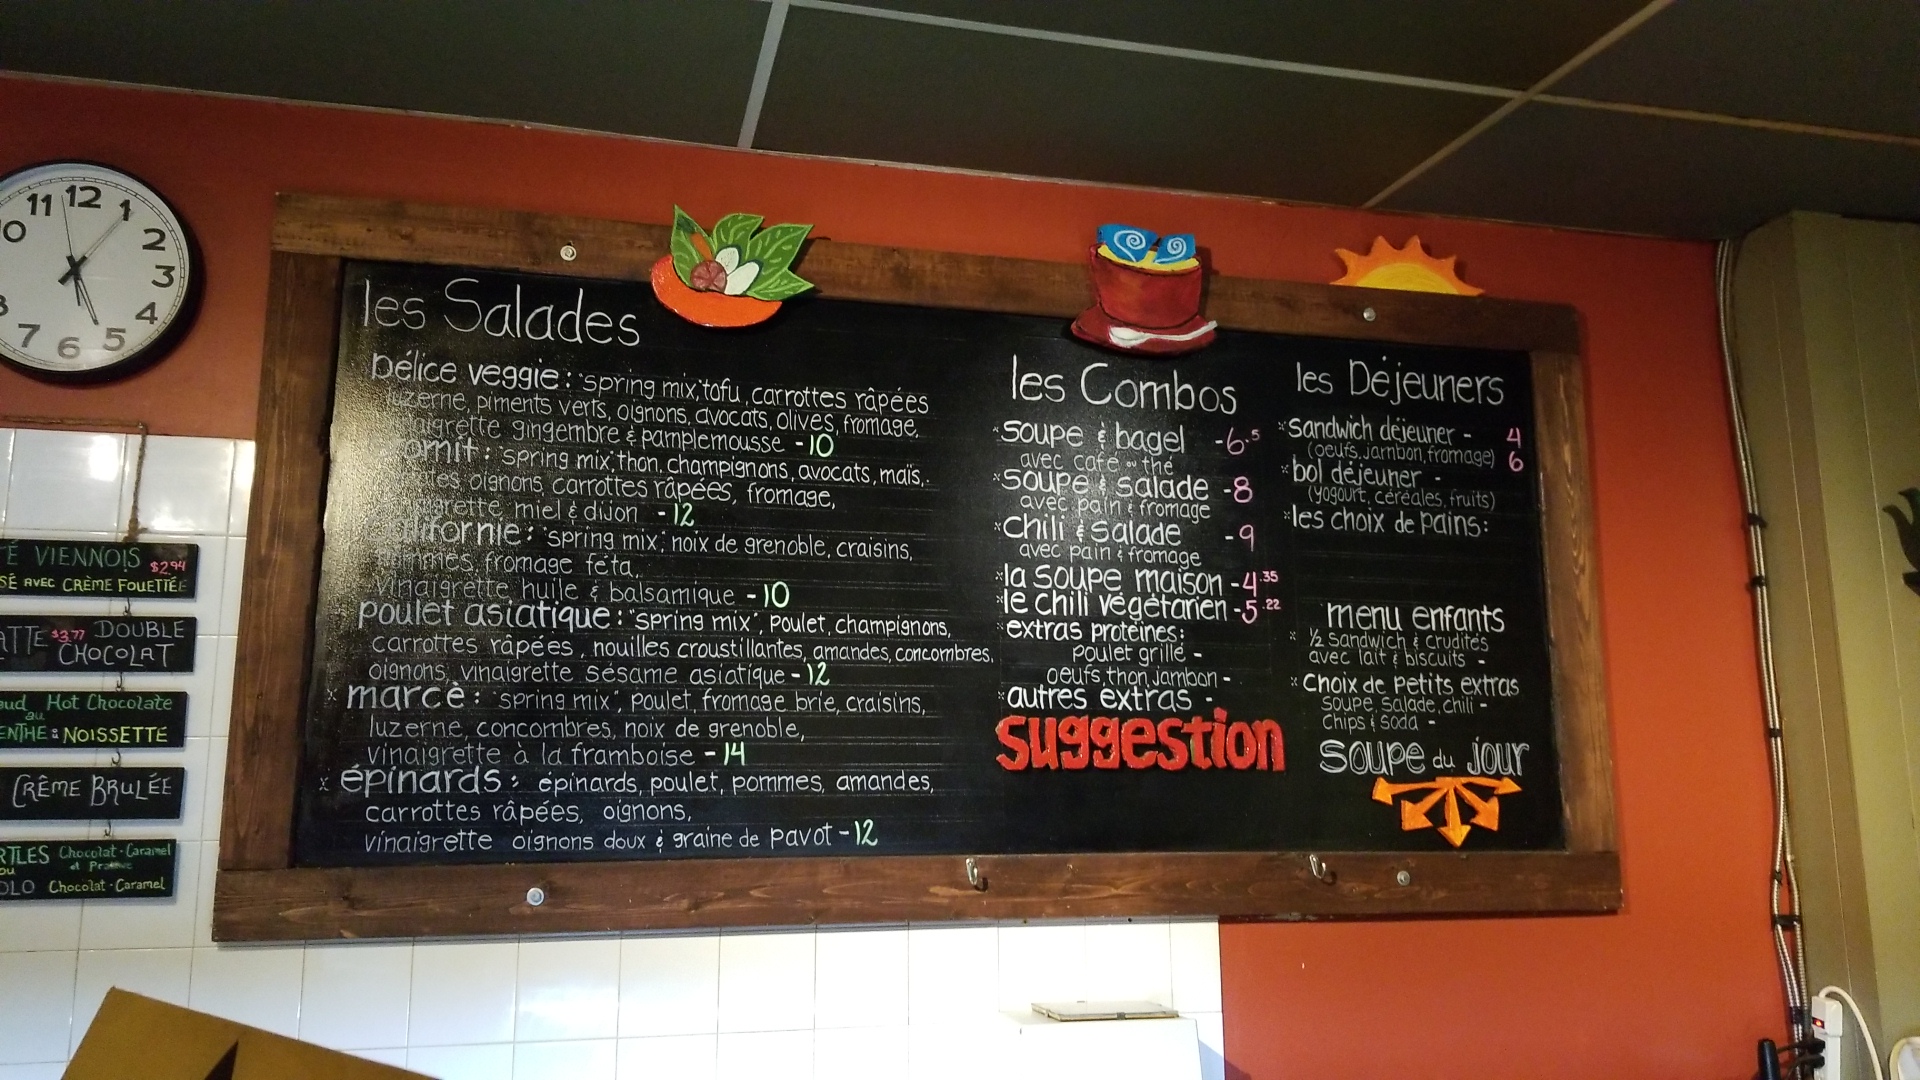 11 12 1
10 2
3
8 4
7 6 5
É VIENNOIS $2.94
SÉ AVEC CRÈME FOUETTÉE
ATTE $3.77 DOUBLE
CHOCOLAT
aud Hot Chocolate
au
ENTHE & NOISSETTE
CRÈME BRULÉE
RTLES Chocolat · Caramel
ou et
OLO Chocolat · Caramel
les Salades
Délice veggie : "spring mix" tofu, carrottes râpées
luzerne, piments verts, oignons, avocats, olives, fromage,
vinaigrette gingembre & pamplemousse - 10
: "spring mix", thon, champignons, avocats, maïs,
oignons, carrottes râpées, fromage,
vinaigrette miel & dijon - 12
californie : "spring mix", noix de grenoble, craisins,
pommes, fromage féta,
vinaigrette huile & balsamique - 10
poulet asiatique : "spring mix", poulet, champignons,
carrottes râpées, nouilles croustillantes, amandes, concombres,
oignons, vinaigrette sésame asiatique - 12
* marcè : "spring mix", poulet, fromage brie, craisins,
luzerne, concombres, noix de grenoble,
vinaigrette à la framboise - 14
* épinards : épinards, poulet, pommes, amandes,
carrottes râpées, oignons,
vinaigrette oignons doux & graine de pavot - 12
les Combos
* soupe & bagel - 6.5
avec café ou thé
* soupe & salade - 8
avec pain & fromage
* chili & salade - 9
avec pain & fromage
* la soupe maison - 4.35
* le chili végétarien - 5.22
* extras protéines:
poulet grillé -
oeufs, thon, jambon -
* autres extras -
suggestion
les Déjeuners
* sandwich déjeuner - 4
(oeufs, jambon, fromage) 6
* bol déjeuner -
(yogourt, céréales, fruits)
* les choix de pains:
menu enfants
* ½ sandwich & crudités
avec lait & biscuits -
* choix de petits extras
soupe, salade, chili -
chips & soda -
soupe du jour